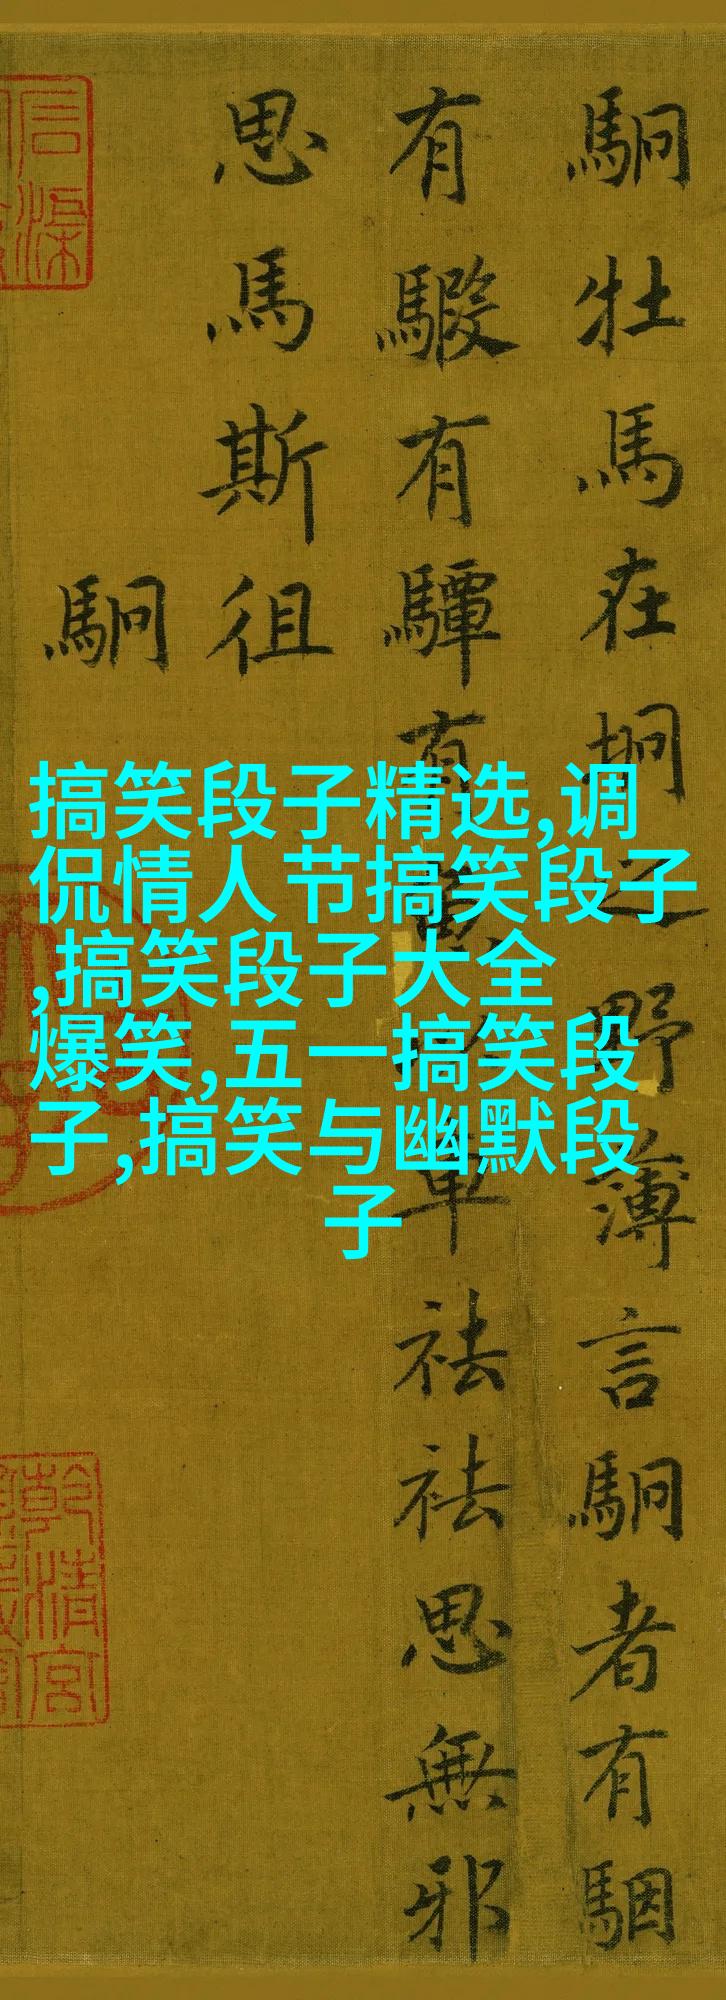 駉牡馬在坰之野薄言駉者有駰
有騢有驔有魚以車祛祛思無邪
思馬斯徂
駉
搞笑段子精选,调
侃情人节搞笑段子
,搞笑段子大全
爆笑,五一搞笑段
子,搞笑与幽默段
子
乾清宫